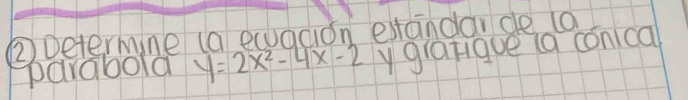 ② Determine la ecuación estándar de la
parábola y = 2x² - 4x - 2 y grafique la cónica